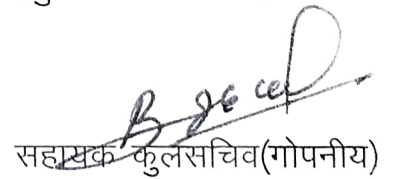 सहायक कुलसचिव(गोपनीय)